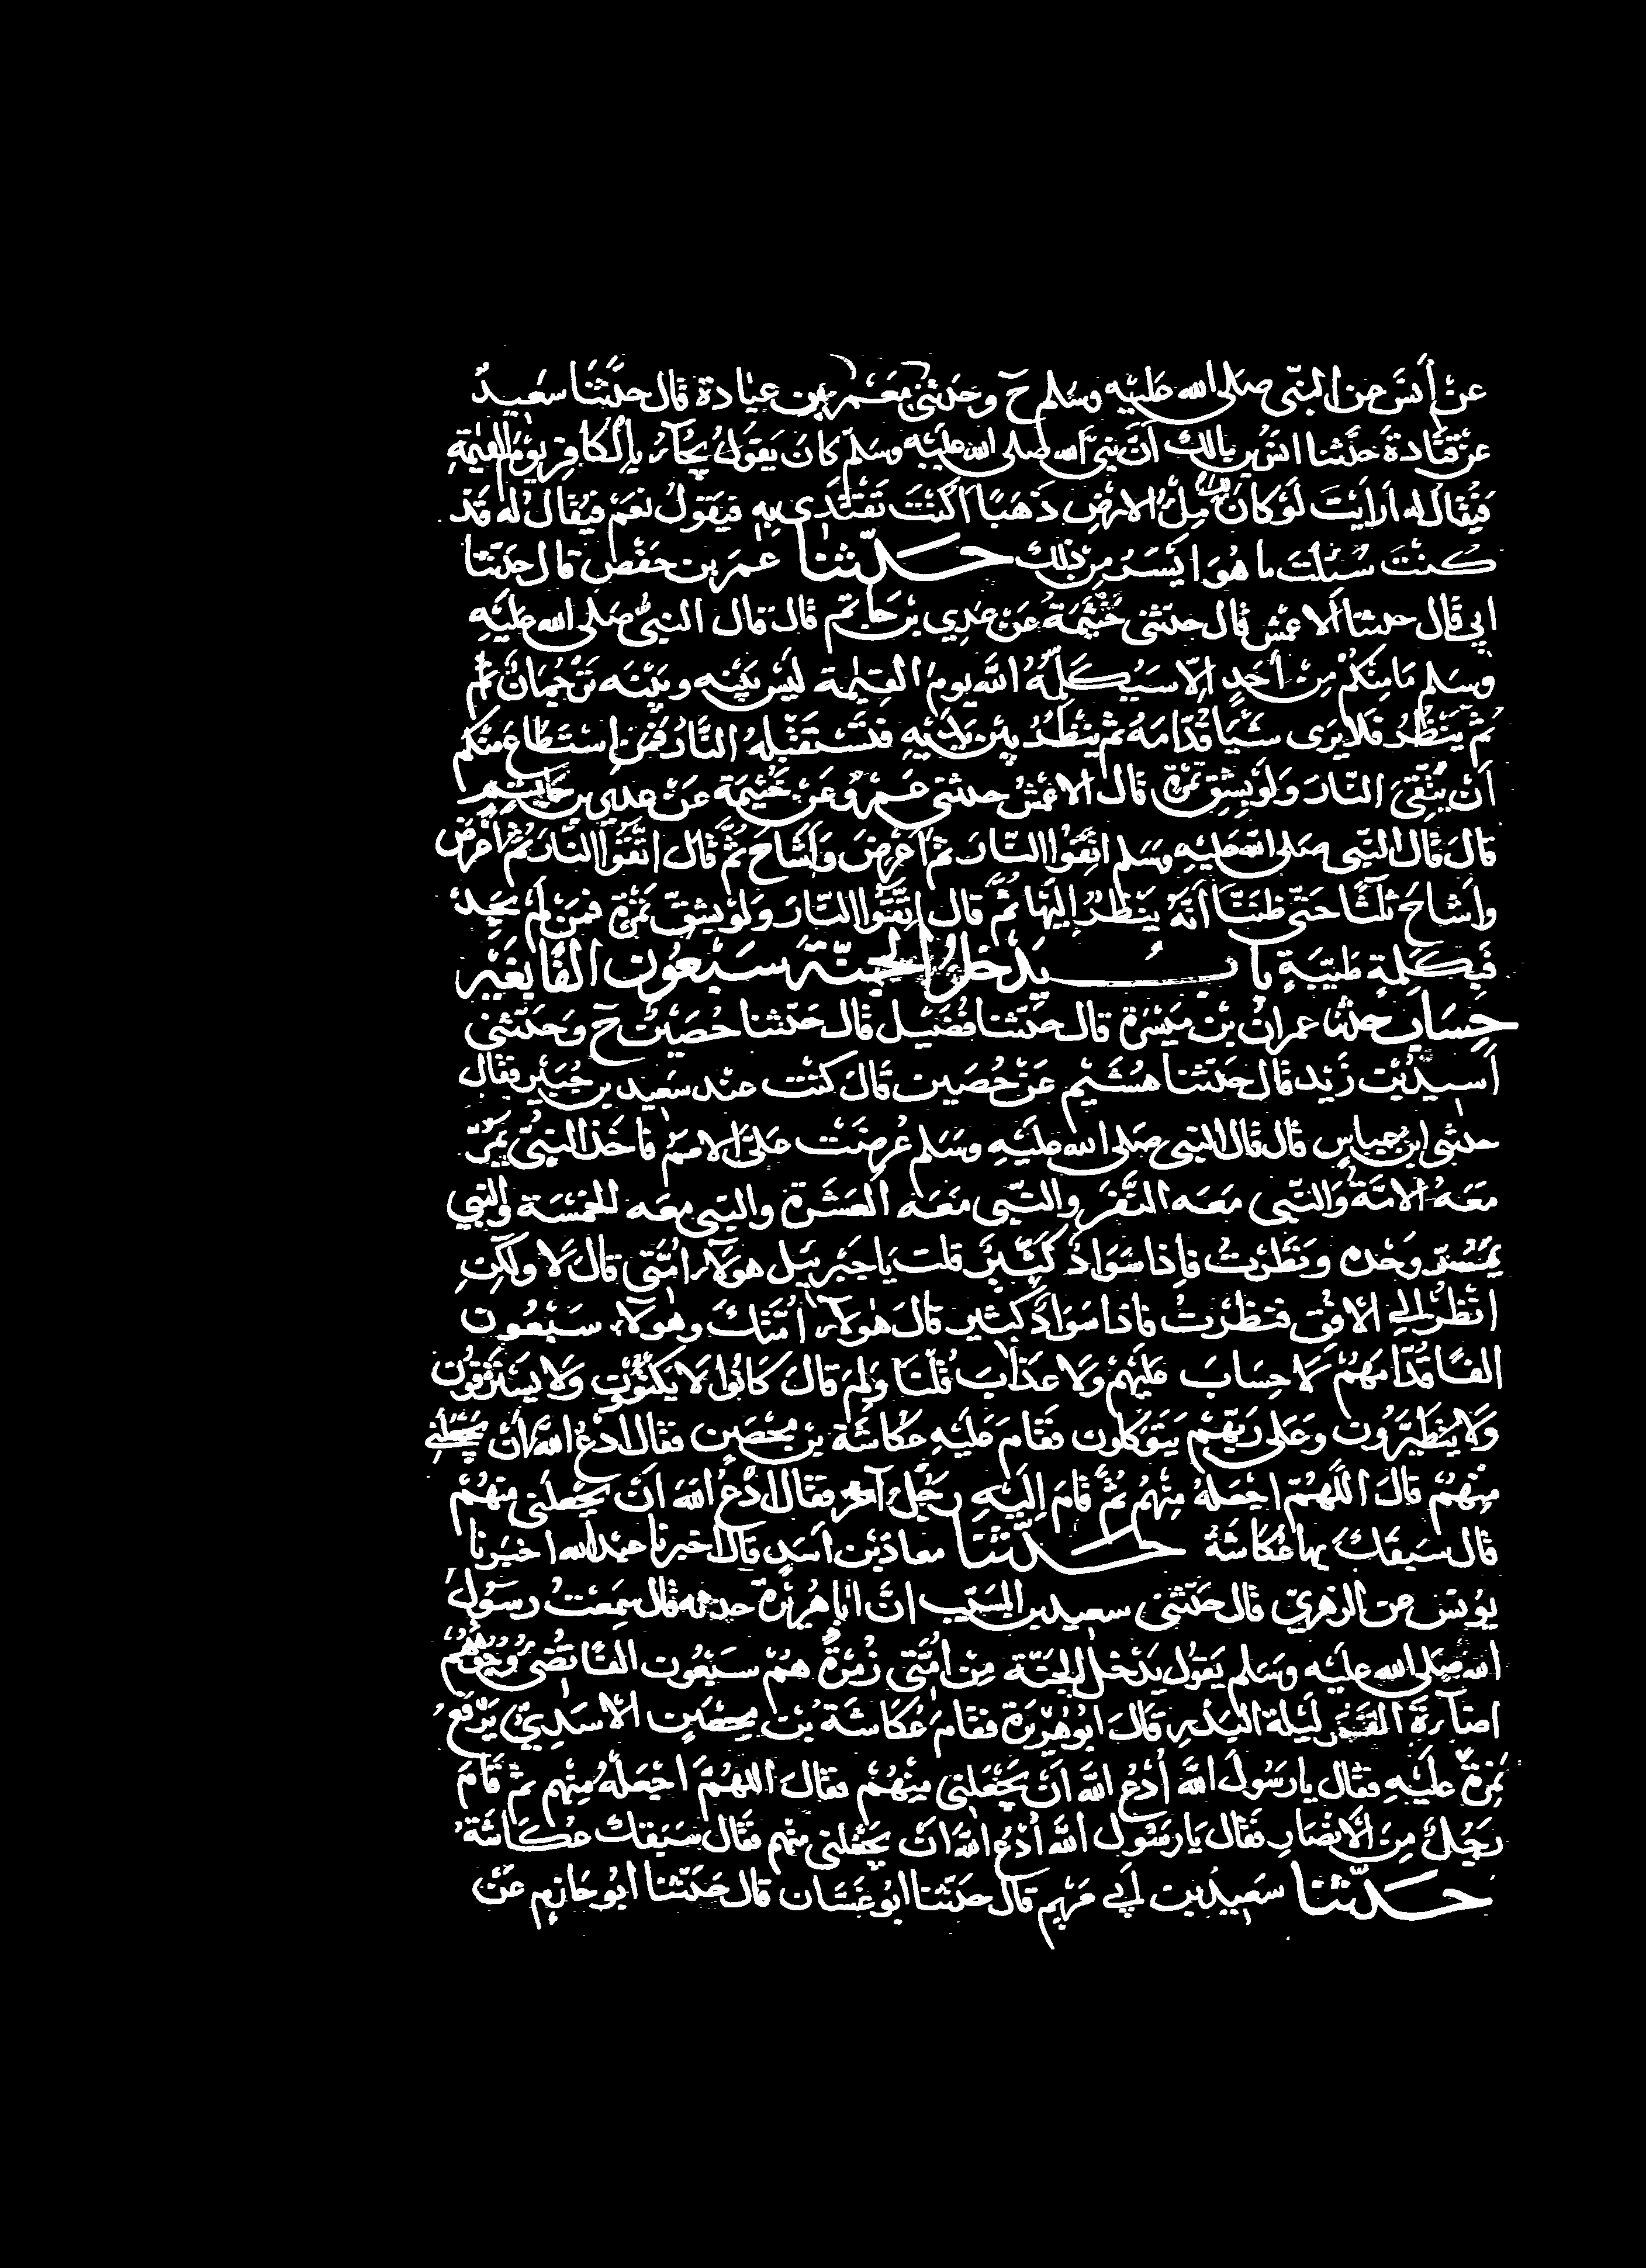 عَنْ أنسَ عن النبّى صَلى الله عَليْه وسَلم حَ وحَدثنى مَعْمر بن عبادة قال حدثنا سَعِيدٌ
عَنْ قتَادة حَدَّثنا انسُ بن مالك أنّ نبىّ الله صلى الله عليه وسلم كانَ يَقولُ يُجَآءُ بِالكَافِرِ يَوْمَ القِيٰمةِ
فيُقالُ له اَرَايْتَ لَوْ كانَ لك مِلْءُ الارْضِ ذَهَبًا اكُنْتَ تَفْتَدِى بِه فيَقولُ نعَمْ فيُقالُ لَه قَد
كُنْتَ سُئِلْتَ ما هُوَ ايْسَرُ مِنْ ذٰلك حَدّثنا عمَر بن حَفْصٍ قال حدّثنا
ابي قال حدثنا الاعمش قال حدّثنى خَيْثَمَةُ عَنْ عَدِي بْن حَاتم قال قال النبىُّ صَلى الله عَليْهِ
وسَلم مَا مِنكُمْ مِنْ أحَدٍ إلّا سَيُكَلِّمُهُ اللّهُ يومَ القِيٰمة ليْسَ بَيْنِه وبَيْنَه تَرْجُمانٌ ثم
ثمّ يَنْظُرُ فَلا يَرَى شَيْئا قُدّامَهُ ثم ينظُرُ بَيْن يَدَيْهِ فتَسْتَقْبِلُهُ النَّارُ فمَنِ اسْتَطَاعَ منكم
اَنْ يَتَّقِىَ النّارَ وَلَوْ بِشِقِّ تمرَةٍ قال الاعمشُ حدثنى عَمرٌو عَنْ خَيْثمَة عَنْ عدي بن حاتم
قالَ قالَ النبّى صَلى الله عَليْهِ وسَلم اتَّقُوا النّارَ ثمّ أعْرَضَ وَأَشَاحَ ثُمَّ قال اتَّقُوا النّارَ ثُمَّ أعْرَضَ
وأشَاحَ ثلٰثًا حَتّى ظنَنّا أنّهُ يَنْظُرُ إليْهَا ثُمَّ قال اتَّقُوا النّارَ وَلَوْ بِشِقِّ تَمْرَةٍ فمَنْ لَمْ يَجِدْ
فَبِكَلِمةٍ طَيّبَةٍ بابُ يَدْخلُ الجنّةَ سَبْعُون الفًا بغَيْر
حِسَاب حدثنا عمرانُ بْن مَيْسَرَة قال حدّثنا فُضَيْل قال حَدّثنا حُصَيْن حَ وَحَدّثنى
أسيْدُ بْن زَيْد قال حَدّثنا هُشَيْم عَنْ حُصَين قالَ كنتُ عنْد سَعيد بن جُبَيْر فقال
حدثنى ابن عباسٍ قال قال النبى صلى الله عليه وسَلم عُرِضَتْ عَلىَّ الامَمُ فأخَذ النبىُّ يَمُرّ
مَعَهُ الامّةُ والنّبى مَعَه النّفَرُ والنّبى مَعَه العَشَرة والنبى معَه الخمْسَة والنبي
يَمُرّ وَحْدَه ونَظَرْتُ فإذا سَوَادٌ كَثِيْرٌ قلت يَا جِبْرئيل هؤلآء اُمّتى قال لا ولٰكِن
انْظُرْ الى الأفُق فنظَرْتُ فاذا سَوَادٌ كَثِير قال هٰؤلآء اُمّتُكَ وهٰؤلآء سَبْعُون
الفًا قُدّامَهُمْ لَا حِسَابَ عَليْهِمْ وَلا عَذَابَ قُلْنَا وَلِمَ قالَ كَانُوا لا يَكتَوُون وَلا يَسْتَرْقُون
وَلا يتَطَيّرُون وعَلى رَبّهِمْ يَتَوكلون فقَام عَليْهِ عكاشَة بْن مِحْصَن فقال ادعُ الله أن يَجْعَلَنِى
مِنْهُمْ قالَ اللّهُمّ اجْعَلهُ مِنْهُمْ ثُمَّ قامَ إليْهِ رجُلٌ آخر فقال ادْعُ الله أنْ يَجْعَلَنى منهُمْ
قال سَبقكَ بها عُكاشَةُ حَدّثنا معاذ بْن أسَدٍ قال اخبرنا عبد الله اخبَرنا
يوُنس عن الزهريّ قال حَدّثنى سعيد بن المسَيّب انّ ابَا هُرَيْرة حدثه قال سَمِعْتُ رسُوْلَ
الله صلى الله عليه وسَلم يَقوُل يَدْخل الجنّة مِنْ اُمّتى زُمْرَةٌ هُمْ سَبْعُون الفًا تُضِىءُ وُجُوْهُهُمْ
اضآءةَ القَمَر لَيْلة البَدْر قالَ ابُو هُرَيْرَة فقَامَ عُكاشَة بْن مِحْصَن الأسَدِيّ يَرْفَعُ
نَمِرَةً عليْهِ فقال يا رَسُولَ اللهِ اُدْعُ اللهَ أنْ يَجْعَلَنِى مِنْهُمْ فقالَ اللهُمَّ اجْعَلهُ مِنْهم ثمّ قَامَ
رَجُلٌ مِنَ الأنْصَارِ فقَال يَا رَسُول اللهِ اُدْعُ اللهَ انْ يَجْعَلنى منْهم فقَال سَبَقك عُكَاشَةُ
حَدّثنا سَعِيدُ بْن أبي مَرْيَم قال حَدّثنا ابُو غَسّان قال حَدّثنا ابُو حَازِم عَنْ